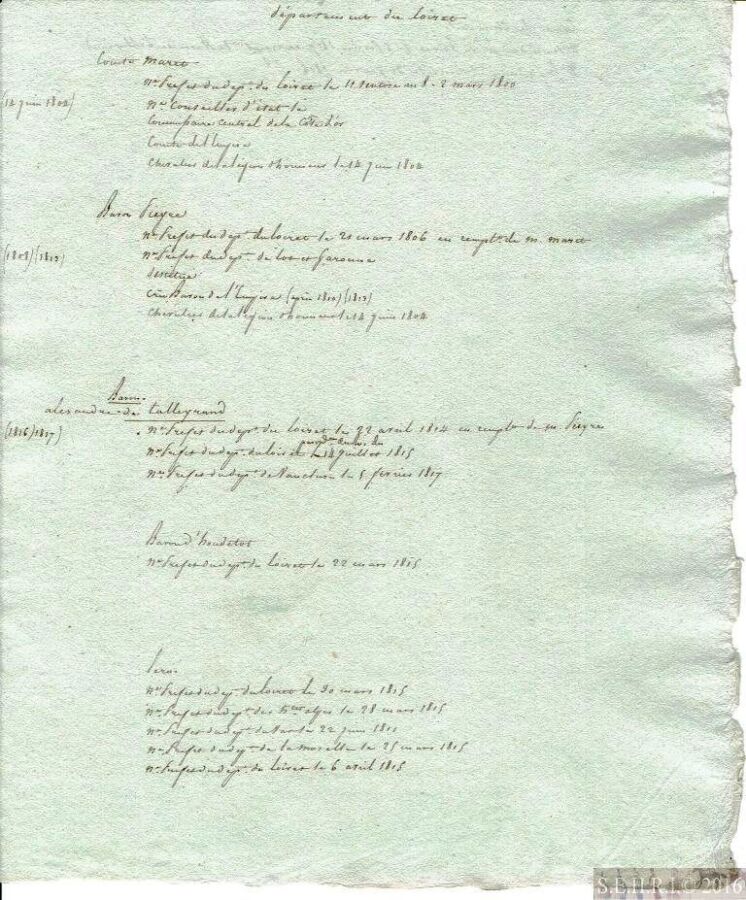 département du loiret
Comte maret
né Préfet du dépt. du loiret le 11 ventose an 8 - 2 mars 1800
(14 juin 1804)
né Conseiller d'état le
Commissaire central de la Côte d'or
Comte de l'empire
Chevalier de la legion d'honneur le 14 juin 1804
Baron Pieyre
né Préfet du dépt. du loiret le 21 mars 1806 en remplt. de m. maret
(1808) (1813)
né Préfet du dépt. de lot et Garonne
créé Baron de l'Empire (1810) (1813)
Chevalier de la legion d'honneur le 14 juin 1804
Baron
alexandre de talleyrand
né Préfet du dépt. du loiret le 22 avril 1814 en remplt. de m. Pieyre
(1816) 1817)
né Préfet du dépt. du loiret le 14 juillet 1815
né Préfet du dépt. de Vaucluse le 5 février 1817
Baron d'houdetot
né Préfet du dépt. du loiret le 22 mars 1815
né Préfet du dépt. du loiret le 30 mars 1815
né Préfet du dépt. des Btes alpes le 28 mars 1815
né Préfet du dépt. de Var le 22 juin 1811
né Préfet du dépt. de la moselle le 25 mars 1815
né Préfet du dépt. du loiret le 6 avril 1815
S.E.H.R.I.© 2016